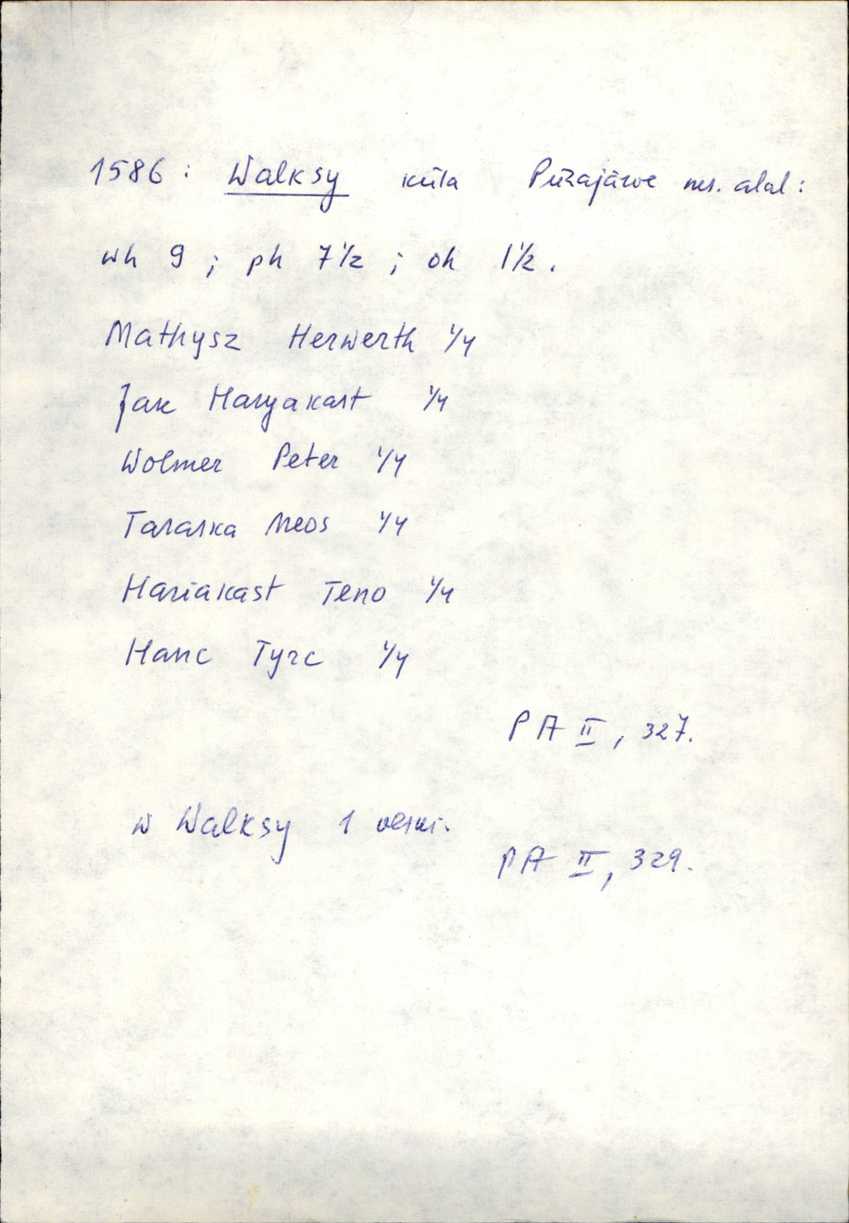 1586: Walksy küla Pühajärve ms. alal:
wh 9 ; ph 7 1/2 ; oh 1 1/2.
Mathysz Herwerth 1/4
Jak Haryakast 1/4
Wolmer Peter 1/4
Tararka Meos 1/4
Hariakast Teno 1/4
Hanc Tyrc 1/4
PA II, 327.
w Walksy 1
PA II, 329.